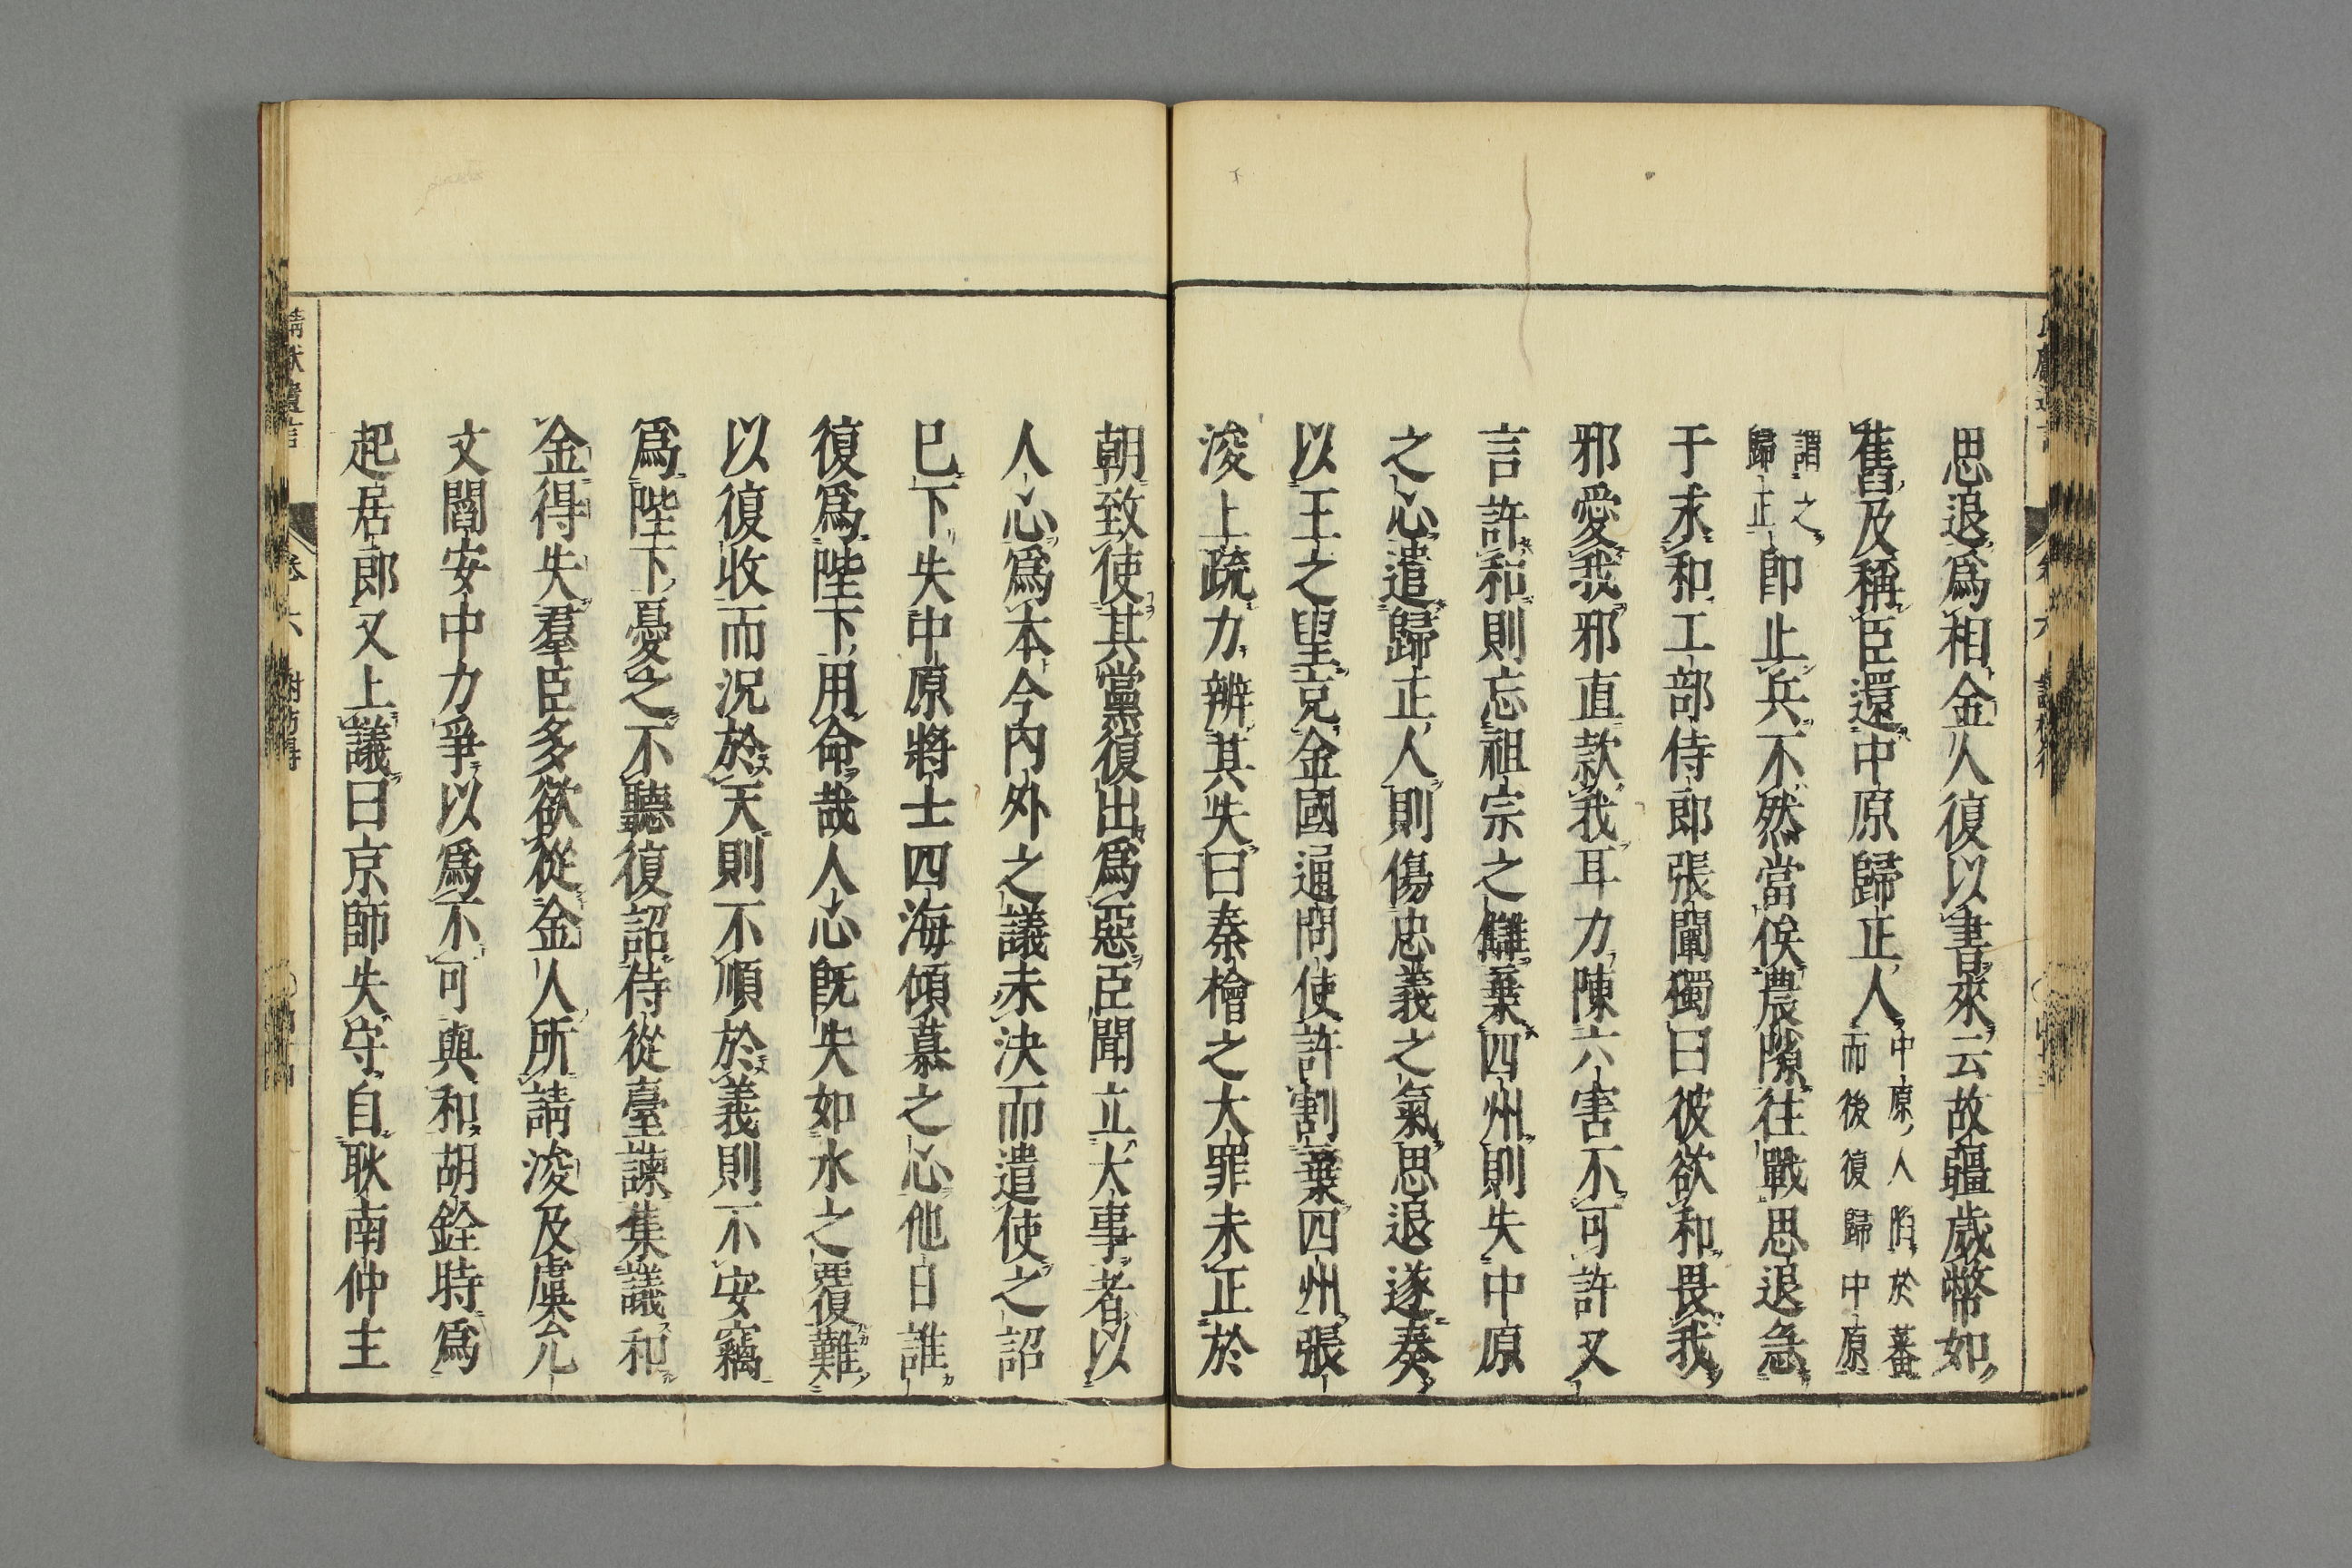 思退爲相金人復以書來云故疆歲幣如
舊及稱臣還中原歸正人中原人陷於蕃
而後復歸中原
謂之
歸正即止兵不然當俟農隙往戰思退急
于求和工部侍郎張闡獨曰彼欲和畏我
邪愛我邪直款我耳力陳六害不可許又
言許和則忘祖宗之讎棄四州則失中原
之心遣歸正人則傷忠義之氣思退遂奏
以王之望克金國通問使許割棄四州張
浚上疏力辨其失曰秦檜之大罪未正於
朝致使其黨復出爲惡臣聞立大事者以
人心爲本今內外之議未決而遣使之詔
巳下失中原將士四海傾慕之心他日誰
復爲陛下用命哉人心既失如水之覆難
以復收而況於天則不順於義則不安竊
爲陛下憂之不聽復詔侍從臺諫集議和
金得失羣臣多欲從金人所請浚及虞允
文閻安中力爭以爲不可與和胡銓時爲
起居郎又上議曰京師失守自耿南仲主
靖獻遺言 卷六 謝枋得